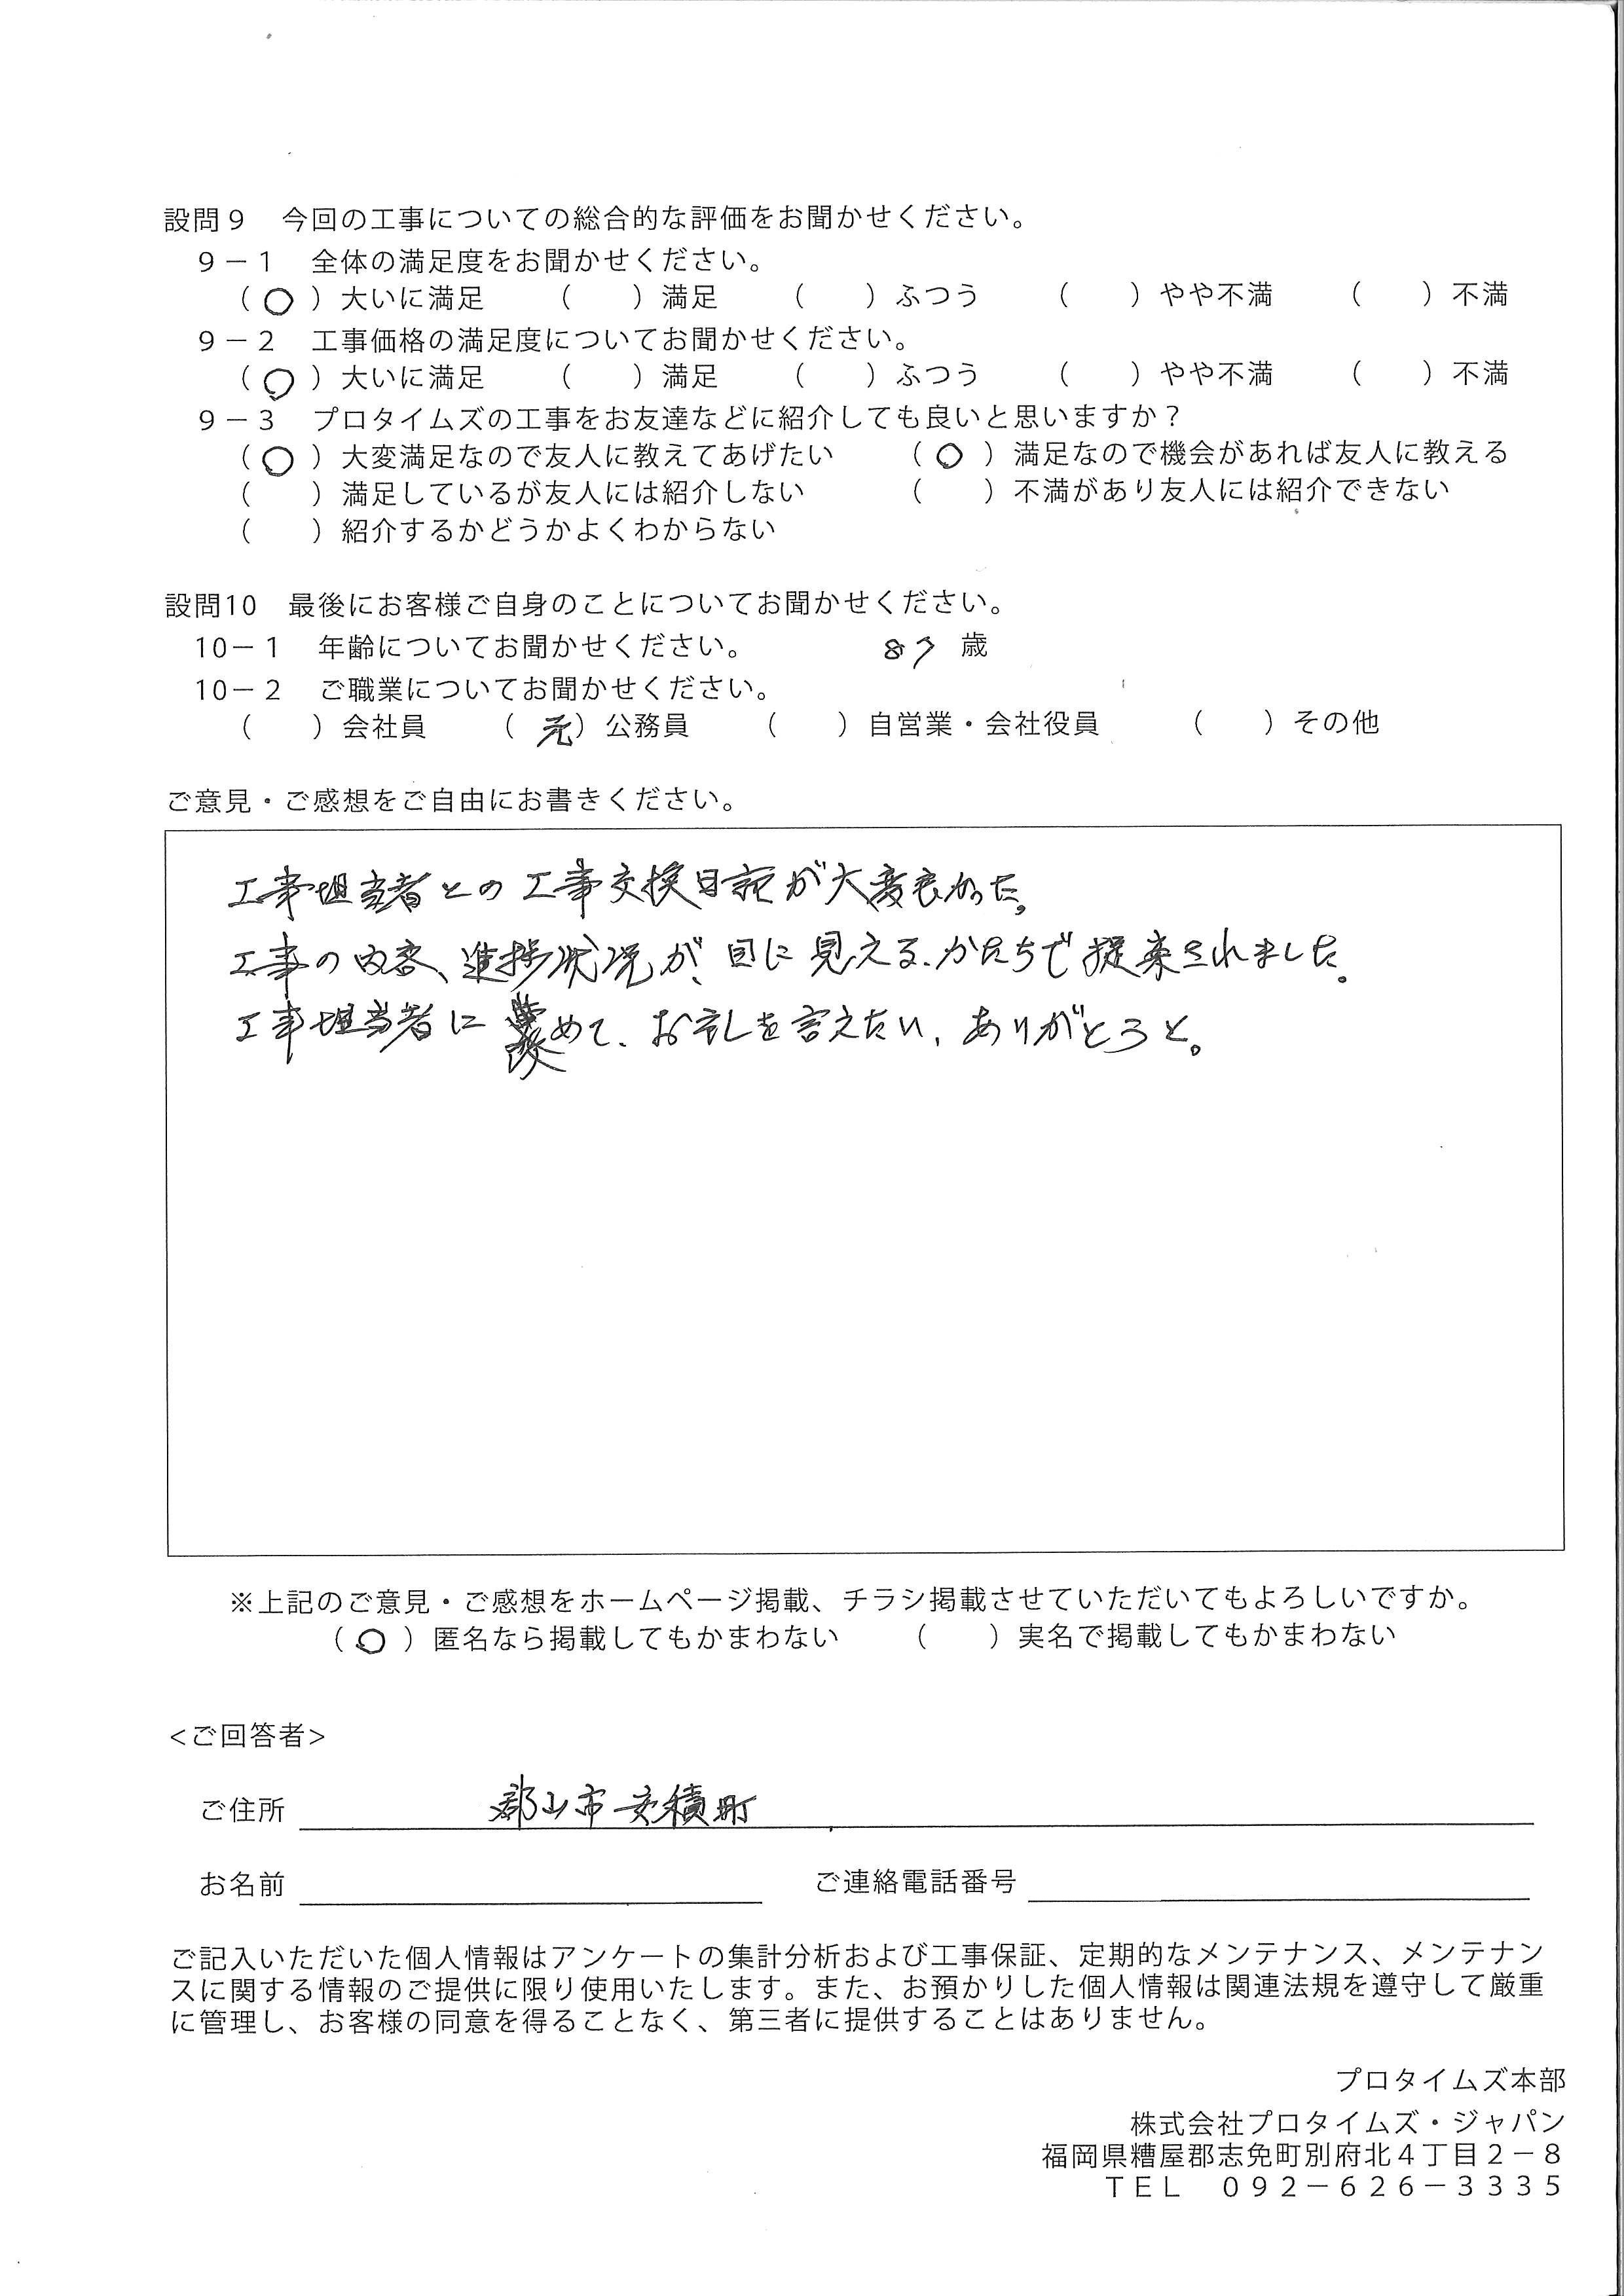 設問９　今回の工事についての総合的な評価をお聞かせください。
９－１　全体の満足度をお聞かせください。
（ ○ ）大いに満足　　（　　）満足　　（　　）ふつう　　（　　）やや不満　　（　　）不満
９－２　工事価格の満足度についてお聞かせください。
（ ○ ）大いに満足　　（　　）満足　　（　　）ふつう　　（　　）やや不満　　（　　）不満
９－３　プロタイムズの工事をお友達などに紹介しても良いと思いますか？
（ ○ ）大変満足なので友人に教えてあげたい　　（ ○ ）満足なので機会があれば友人に教える
（　　）満足しているが友人には紹介しない　　（　　）不満があり友人には紹介できない
（　　）紹介するかどうかよくわからない
設問10　最後にお客様ご自身のことについてお聞かせください。
10－１　年齢についてお聞かせください。　　87 歳
10－２　ご職業についてお聞かせください。
（　　）会社員　　（ 元 ）公務員　　（　　）自営業・会社役員　　（　　）その他
ご意見・ご感想をご自由にお書きください。
工事担当者との工事交換日記が大変良かった。
工事の内容、進捗状況が、目に見える、かたちで提案されました。
工事担当者に めて、お礼を言えたい、ありがとうと。
※上記のご意見・ご感想をホームページ掲載、チラシ掲載させていただいてもよろしいですか。
（ ○ ）匿名なら掲載してもかまわない　　（　　）実名で掲載してもかまわない
<ご回答者>
ご住所　郡山市安積町
お名前　　ご連絡電話番号
ご記入いただいた個人情報はアンケートの集計分析および工事保証、定期的なメンテナンス、メンテナン
スに関する情報のご提供に限り使用いたします。また、お預かりした個人情報は関連法規を遵守して厳重
に管理し、お客様の同意を得ることなく、第三者に提供することはありません。
プロタイムズ本部
株式会社プロタイムズ・ジャパン
福岡県糟屋郡志免町別府北４丁目２－８
ＴＥＬ　０９２－６２６－３３３５